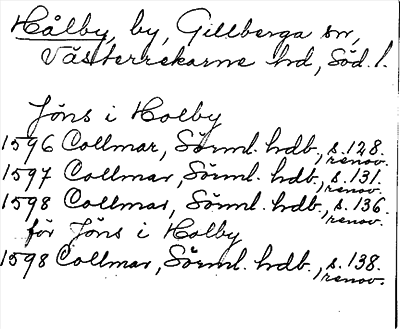 Hålby, by, Gillberga sn,
Västerrekarne hd, Söd. l.
Jöns i Holby
1596 Collmar, Sörml. hdb., s. 128.
renov.
1597 Collmar, Sörml. hdb., s. 131.
renov.
1598 Collmar, Sörml. hdb., s. 136.
renov.
för Jöns i Holby
1598 Collmar, Sörml. hdb., s. 138.
renov.